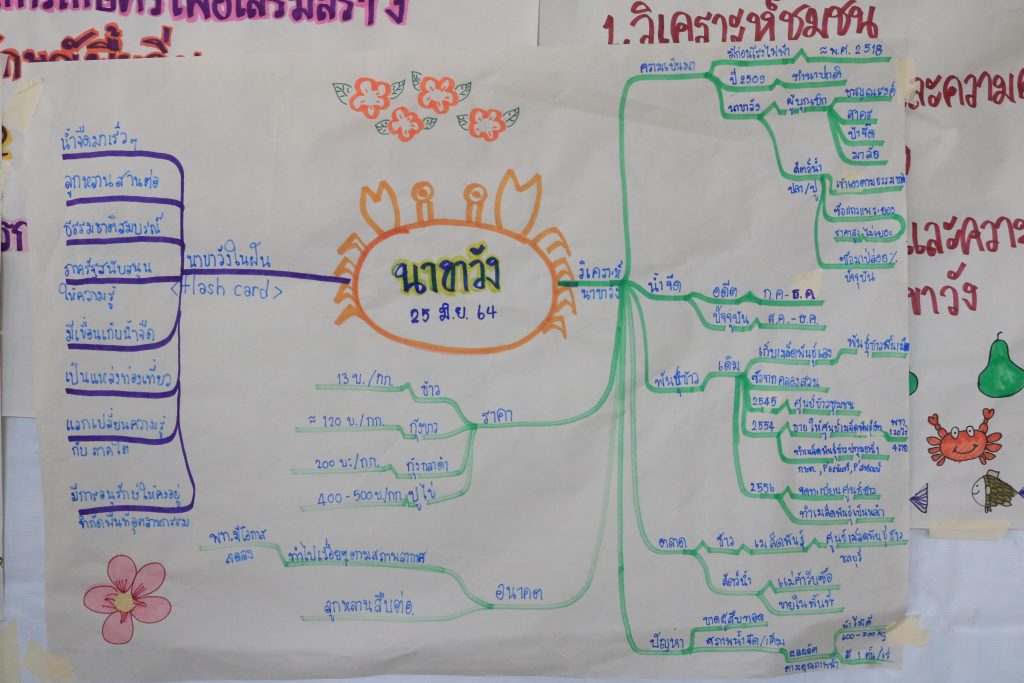 1.วิเคราะห์ชุมชน
นาขาวัง
25 มิ.ย. 64
นาขาวังในฝัน
<flash card>
น้ำจืดมาเร็วๆ
ลูกหลานสานต่อ
ธรรมชาติสมบูรณ์
ภาครัฐสนับสนุน
ให้ความรู้
มีเขื่อนเก็บน้ำจืด
เป็นแหล่งท่องเที่ยว
แลกเปลี่ยนความรู้
กับ ภาคใต้
มีการอนุรักษ์ให้คงอยู่
จำกัดพื้นที่อุตสาหกรรม
วิเคราะห์
นาขาวัง
ความเป็นมา
มีก่อนโรงไฟฟ้า
≈ พ.ศ. 2518
ปี 2509
ทำนาปกติ
นาขาวัง
ผู้บุกเบิก
ชาญณรงค์
สาคร
ป้าจี๊ด
มาลัย
สัตว์น้ำ
ปลา/ปู
เข้าเองตามธรรมชาติ
ซื้อมาปล่อย
ปัจจุบัน
น้ำจืด
อดีต
ก.ค-ธ.ค
ปัจจุบัน
ส.ค.-ธ.ค.
พันธุ์ข้าว
เดิม
เก็บเมล็ดพันธุ์เอง
ซื้อจากคลองสวน
2545
ศูนย์ข้าวชุมชน
2554
ขายให้ศูนย์เมล็ดพันธุ์ข้าว
2556
จดทะเบียนศูนย์ข้าว
ทำเมล็ดพันธุ์เป็นหลัก
ตลาด
ข้าว
เมล็ดพันธุ์
ศูนย์เมล็ดพันธุ์ข้าว
ชลบุรี
สัตว์น้ำ
แม่ค้ารับซื้อ
ขายในพื้นที่
ปัญหา
ขาดผู้สืบทอด
สภาพน้ำจืด/เค็ม
ผลผลิต
ตามคุณภาพน้ำ
น้ำไม่ดี
600-700 kg
ดี 1 ตัน/ไร่
ราคา
ข้าว
13 บ./กก.
กุ้งขาว
≈ 120 บ/กก.
กุ้งกุลาดำ
200 บ./กก.
ปูไข่
400-500 บ/กก.
อนาคต
ทำไปเรื่อยๆตามสภาพอากาศ
พท.มีโอกาส
ลดลง
ลูกหลานสืบต่อ